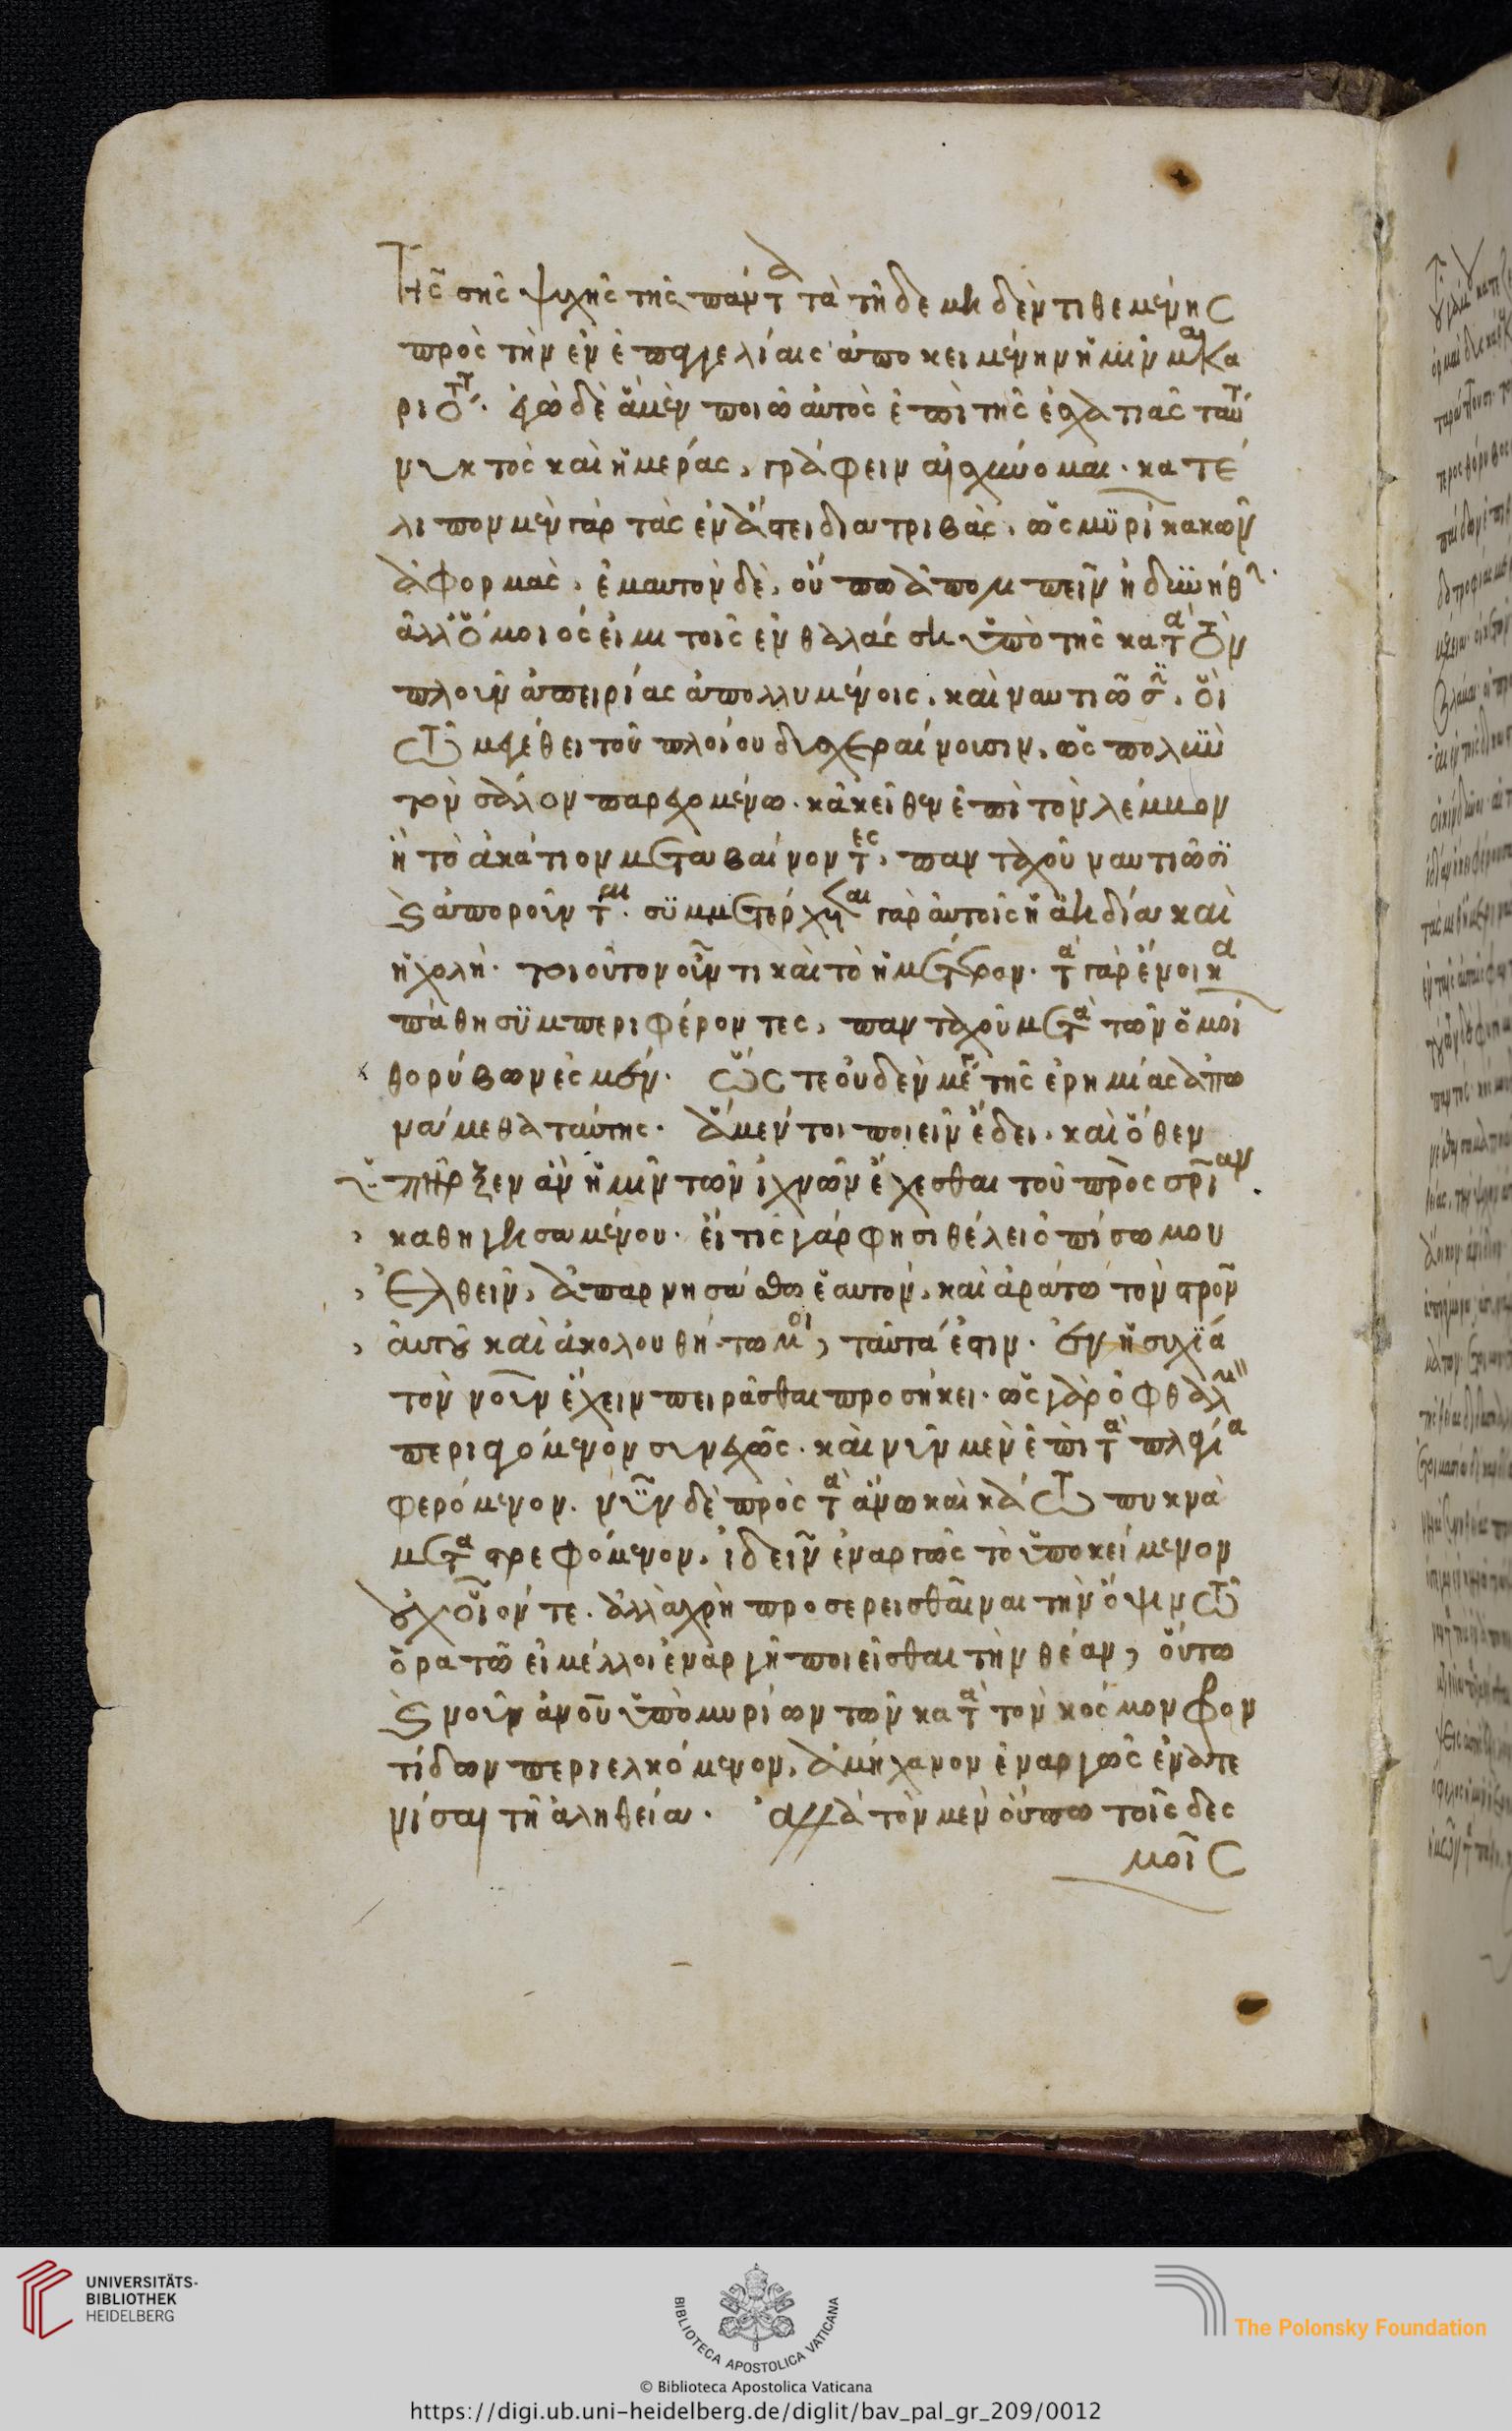 τῆς σῆς ψυχῆς τῆς πάντα τὰ τῆδε μηδὲν τιθεμένης
πρὸς τὴν ἐν ἐπαγγελίαις ἀποκειμένην ἡμῖν μακα
ριότητ. ἐγὼ δὲ ἃ μὲν ποιῶ αὐτὸς ἐπὶ τῆς ἐσχατιᾶς ταύτ
νυκτὸς καὶ ἡμέρας, γράφειν αἰσχύνομαι. κατέ
λιπον μὲν γὰρ τὰς ἐν ἄστει διατριβὰς, ὡς μυρί κακῶν
ἀφορμὰς, ἐμαυτὸν δὲ, οὔπω ἀπολιπεῖν ἠδυνήθ.
ἀλλ' ὅμοιός εἰμι τοῖς ἐν θαλάσση ὑπὸ τῆς κατὰ τὸν
πλοῦν ἀπειρίας ἀπολλυμένοις, καὶ ναυτιῶσ, οἳ
τῶ μεγέθει τοῦ πλοίου δυσχεραίνουσιν, ὡς πολὺν
τὸν σάλον παρεχομένω. κἀκεῖθεν ἐπὶ τὸν λέμβον
ἢ τὸ ἀκάτιον μεταβαίνοντες, πανταχοῦ ναυτιῶσι
καὶ ἀποροῦνται. συμμετέρχεται γὰρ αὐτοῖς ἡ ἀηδία καὶ
ἡ χολή. τοιοῦτον οὖν τι καὶ τὸ ἡμέτερον. τὰ γὰρ ἔνοικα
πάθη συμπεριφέροντες, πανταχοῦ μετὰ τῶν ὁμοί
θορύβων ἐσμέν. ὥστε οὐδὲν μέγ τῆς ἐρημίας ἀπω
νάμεθα ταύτης. ἃ μέντοι ποιεῖν ἔδει, καὶ ὅθεν
ὑπῆρξεν ἂν ἡμῖν τῶν ἰχνῶν ἔχεσθαι τοῦ πρὸς σρίαν
καθηγησαμένου. εἴ τις γάρ φησι θέλει ὀπίσω μου
ἐλθεῖν, ἀπαρνησάσθω ἑαυτὸν, καὶ ἀράτω τὸν στρον
αὐτοῦ καὶ ἀκολουθήτω μοι, ταῦτά ἐστιν. ἐν ἡσυχία
τὸν νοῦν ἔχειν πειρᾶσθαι προσήκει. ὡς γὰρ ὀφθαλμ
περιαγόμενον συνεχῶς. καὶ νῦν μὲν ἐπὶ τὰ πλάγια
φερόμενον. νῦν δὲ πρὸς τὰ ἄνω καὶ κάτω πυκνὰ
μεταστρεφόμενον, ἰδεῖν ἐναργῶς τὸ ὑποκείμενον
οὐχ οἷόν τε. ἀλλὰ χρὴ προσερεισθῆναι τὴν ὄψιν τῶ
ὁρατῶ εἰ μέλλοι ἐναργῆ ποιεῖσθαι τὴν θέαν, οὕτω
καὶ νοῦν ἀνου ὑπὸ μυρίων τῶν κατὰ τὸν κόσμον φρον
τίδων περιελκόμενον, ἀμήχανον ἐναργῶς ἐνατε
νίσαι τῆ ἀληθεία. ἀλλὰ τὸν μὲν οὔπω τοῖς δεσ
μοῖς
UNIVERSITÄTS-
BIBLIOTHEK
HEIDELBERG
BIBLIOTECA APOSTOLICA VATICANA
The Polonsky Foundation
© Biblioteca Apostolica Vaticana
https://digi.ub.uni-heidelberg.de/diglit/bav_pal_gr_209/0012